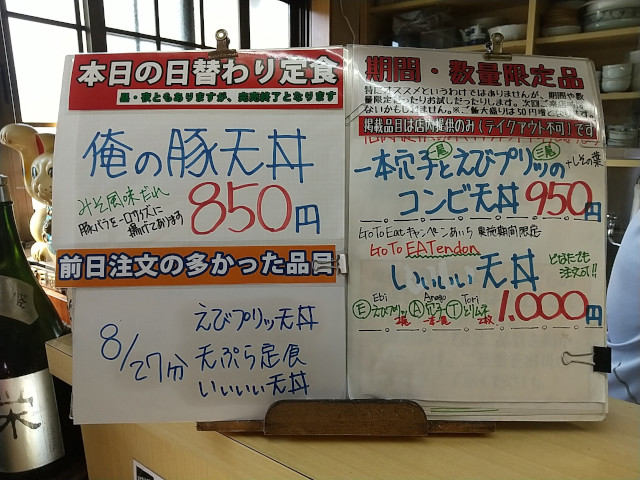 本日の日替わり定食
昼・夜ともありますが、完売終了となります
俺の豚天丼
みそ風味だれ
豚バラを一口サイズに
揚げてあります
850円
前日注文の多かった品目
8/27分
えびプリッ天丼
天ぷら定食
いいいい天丼
期間・数量限定品
特にオススメというわけではありませんが、期間や数
量限定だったりお試しだったりします。次回ご来店時に
ないかもしれません。※ご飯大盛りは50円増
掲載品目は店内提供のみ(テイクアウト不可)です
一本穴子とえびプリッの
一尾
三尾
+しその葉
コンビ天丼 950円
GoToEatキャンペーンあいち 実施期間限定
GoTo EATendon
いいいい天丼
どなたでも
注文可!!
Ebi Anago Tori
Ⓔえびプリッ Ⓐ穴子 Ⓣとりムネ
2尾 一本 2枚
1,000円